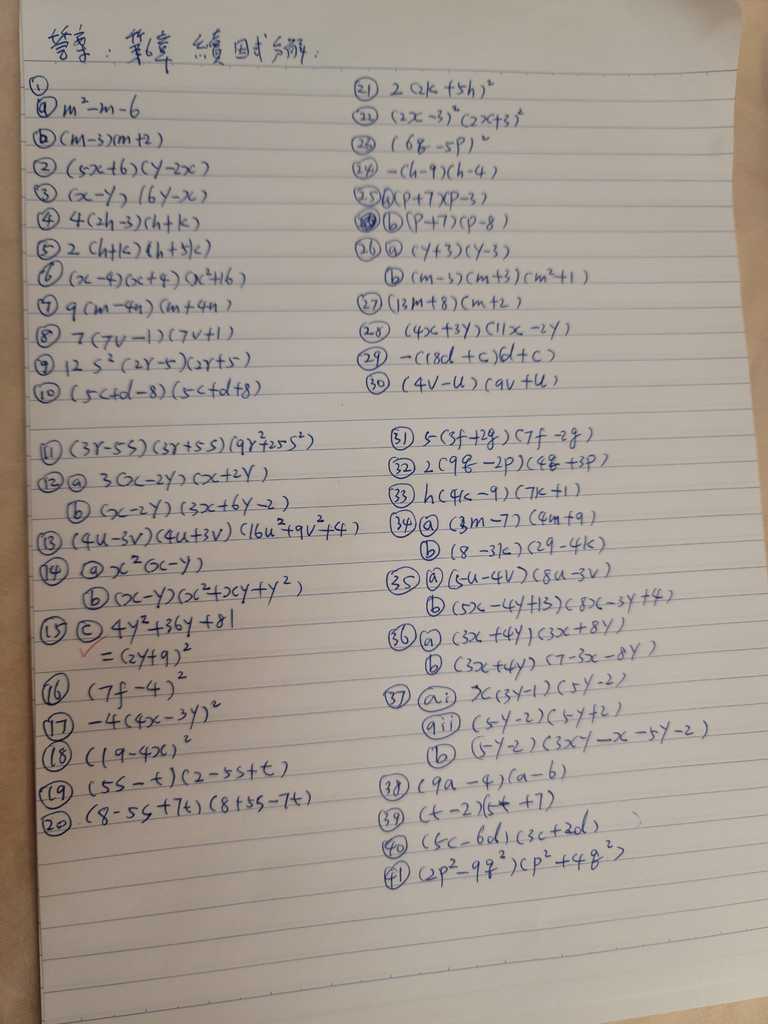 答案：第6章 續因式分解：
①
ⓐ m²-m-6
ⓑ (m-3)(m+2)
② (5x+6)(y-2x)
③ (x-y)(6y-x)
④ 4(2h-3)(h+k)
⑤ 2(h+k)(h+5k)
⑥ (x-4)(x+4)(x²+16)
⑦ 9(m-4n)(m+4n)
⑧ 7(7v-1)(7v+1)
⑨ 12s²(2r-5)(2r+5)
⑩ (5c+d-8)(5c+d+8)
⑪ (3r-5s)(3r+5s)(9r²+25s²)
⑫ ⓐ 3(x-2y)(x+2y)
ⓑ (x-2y)(3x+6y-2)
⑬ (4u-3v)(4u+3v)(16u²+9v²+4)
⑭ ⓐ x²(x-y)
ⓑ (x-y)(x²+xy+y²)
⑮ ⓒ 4y²+36y+81
=(2y+9)²
⑯ (7f-4)²
⑰ -4(4x-3y)²
⑱ (19-4x)²
⑲ (5s-t)(2-5s+t)
⑳ (8-5s+7t)(8+5s-7t)
㉑ 2(2k+5h)²
㉒ (2x-3)²(2x+3)²
㉓ (6q-5p)²
㉔ -(h-9)(h-4)
㉕ ⓐ(p+7)(p-3)
ⓑ(p+7)(p-8)
㉖ ⓐ (y+3)(y-3)
ⓑ (m-3)(m+3)(m²+1)
㉗ (13m+8)(m+2)
㉘ (4x+3y)(11x-2y)
㉙ -(18d+c)(d+c)
㉚ (4v-u)(9v+u)
㉛ 5(3f+2g)(7f-2g)
㉜ 2(9q-2p)(4q+3p)
㉝ h(4k-9)(7k+1)
㉞ ⓐ (3m-7)(4m+9)
ⓑ (8-3k)(29-4k)
㉟ ⓐ(5u-4v)(8u-3v)
ⓑ(5x-4y+13)(8x-3y+4)
㊱ ⓐ (3x+4y)(3x+8y)
ⓑ (3x+4y)(7-3x-8y)
㊲ ai x(3y-1)(5y-2)
aii (5y-2)(5y+2)
ⓑ (5y-2)(3xy-x-5y-2)
㊳ (9a-4)(a-6)
㊴ (t-2)(5t+7)
㊵ (5c-6d)(3c+2d)
㊶ (2p²-9q²)(p²+4q²)